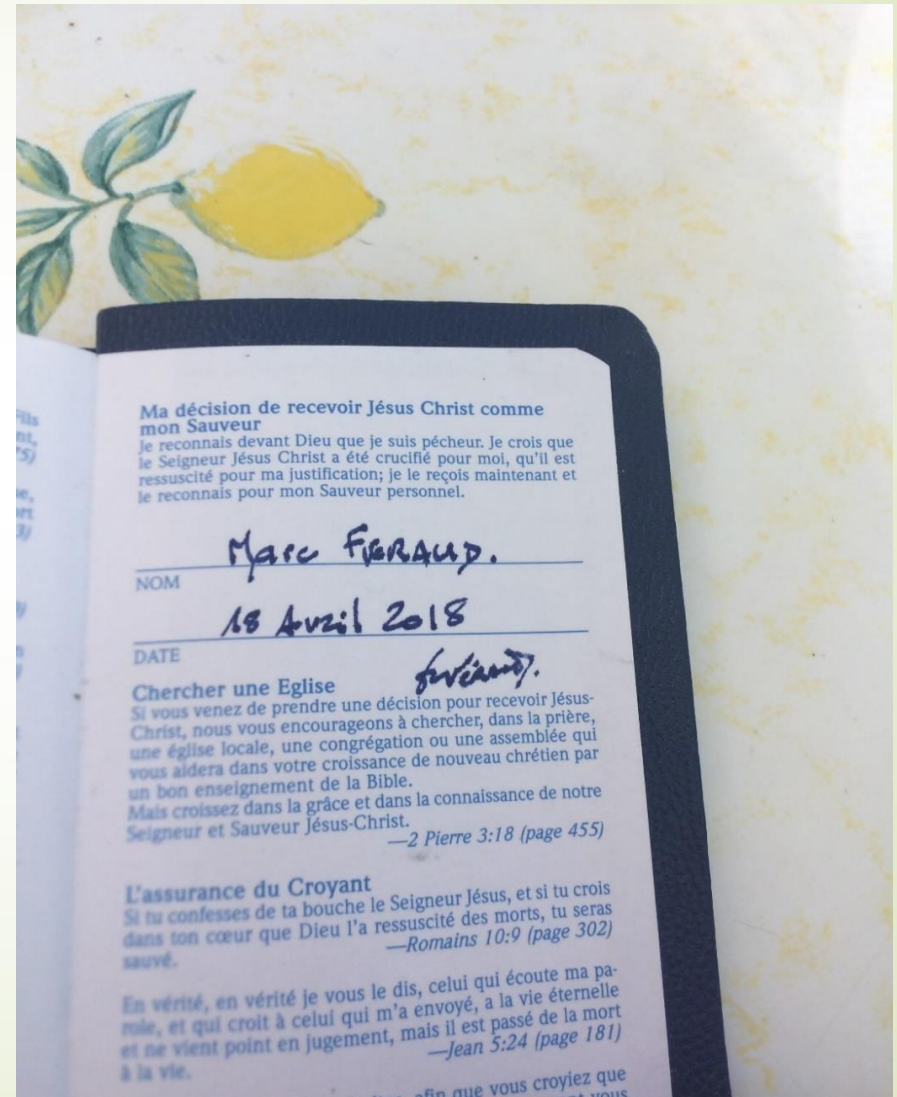 Ma décision de recevoir Jésus Christ comme
mon Sauveur
Je reconnais devant Dieu que je suis pécheur. Je crois que
le Seigneur Jésus Christ a été crucifié pour moi, qu'il est
ressuscité pour ma justification; je le reçois maintenant et
le reconnais pour mon Sauveur personnel.
Marc
NOM
18 Avril 2018
DATE
Chercher une Eglise
Si vous venez de prendre une décision pour recevoir Jésus-
Christ, nous vous encourageons à chercher, dans la prière,
une église locale, une congrégation ou une assemblée qui
vous aidera dans votre croissance de nouveau chrétien par
un bon enseignement de la Bible.
Mais croissez dans la grâce et dans la connaissance de notre
Seigneur et Sauveur Jésus-Christ.
—2 Pierre 3:18 (page 455)
L'assurance du Croyant
Si tu confesses de ta bouche le Seigneur Jésus, et si tu crois
dans ton cœur que Dieu l'a ressuscité des morts, tu seras
sauvé.
—Romains 10:9 (page 302)
En vérité, en vérité je vous le dis, celui qui écoute ma pa-
role, et qui croit à celui qui m'a envoyé, a la vie éternelle
et ne vient point en jugement, mais il est passé de la mort
à la vie.
—Jean 5:24 (page 181)
afin que vous croyiez que